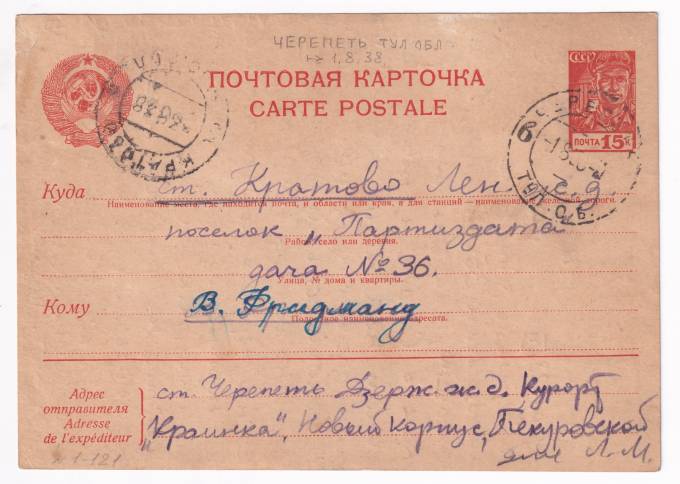 ЧЕРЕПЕТЬ ТУЛ ОБЛ
1.8.38
СССР
ПОЧТОВАЯ КАРТОЧКА
CARTE POSTALE
ПОЧТА 15
Куда ст. Кратово Лен. ж.д.
Наименование места, где находится почта, и области или края, а для станций — наименование железной дороги.
поселок „Партиздата
Район, село или деревня.
дача № 36.
Улица, № дома и квартиры.
Кому В. Фридманду
Подробное наименование адресата.
Адрес отправителя
Adresse de l'expéditeur
ст. Черепеть Дзерж. ж. д. Курорт
„Краинка", Новый корпус, Пекуровской
для Л. М.
1-121